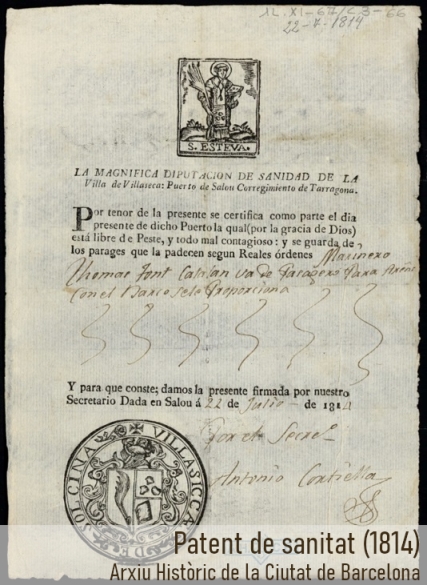 XL.XI-67/C3-66
22-7-1814
S. ESTEVA.
LA MAGNIFICA DIPUTACION DE SANIDAD DE LA
Villa de Villaseca: Puerto de Salou Corregimiento de Tarragona.
Por tenor de la presente se certifica como parte el dia
presente de dicho Puerto la qual (por la gracia de Dios)
está libre de Peste, y todo mal contagioso: y se guarda de
los parages que la padecen segun Reales órdenes Marinero
Thomas font va de Para
con el Barco
Y para que conste; damos la presente firmada por nuestro
Secretario Dada en Salou á 22 de Julio de 1814
Por el Secre
Antonio
VILLASICCA DE SOLCINA
Patent de sanitat (1814)
Arxiu Històric de la Ciutat de Barcelona